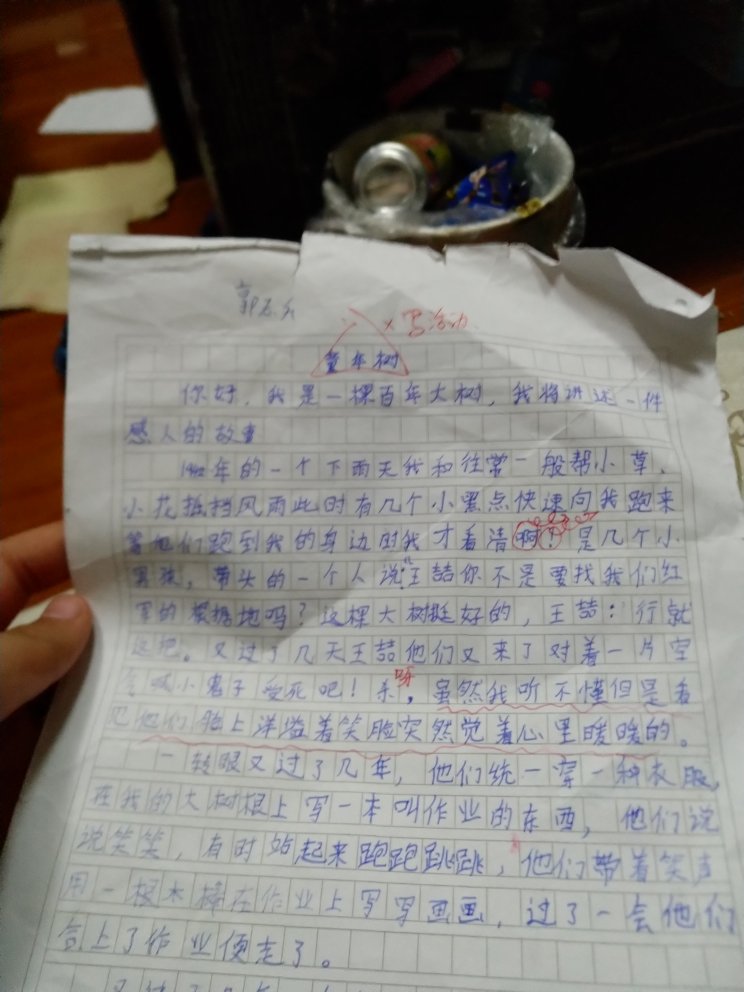 郭
×写活动
童年树
你好,我是一棵百年大树,我将讲述一件
感人的故事
年的一个下雨天我和往常一般帮小草、
小花抵挡风雨此时有几个小黑点快速向我跑来
等他们跑到我的身边时我才看清啊!是几个小
男孩,带头的一个人说:王喆你不是要找我们红
军的根据地吗?这棵大树挺好的,王喆:行就
这把。又过了几天王喆他们又来了对着一片空
喊小鬼子受死吧!杀呀,虽然我听不懂但是看
见他们脸上洋溢着笑脸突然觉着心里暖暖的。
一转眼又过了几年,他们统一穿一种衣服,
在我的大树根上写一本叫作业的东西,他们说
说笑笑,有时站起来跑跑跳跳,他们带着笑声
用一根木棒在作业上写写画画,过了一会他们
合上了作业便走了。